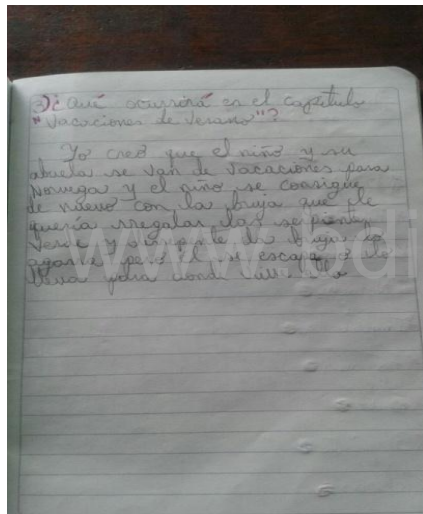 3) ¿Qué ocurrirá en el capítulo
"Vacaciones de Verano"?
Yo creó que el niño y su
abuela se van de vacaciones para
noruega y el niño se consigue
de nuevo con la bruja que le
quería rregalar la serpiente
verde y la bruja lo
agarra pero él se escapa o lo
lleva para donde